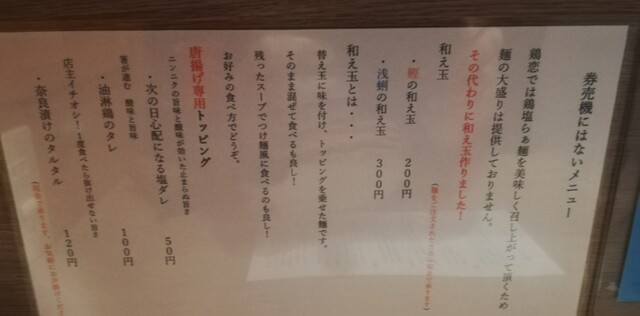 券売機にはないメニュー
鶏恋では鶏塩らぁ麺を美味しく召し上がって頂くため
麺の大盛りは提供しておりません。
その代わりに和え玉作りました!
和え玉
・鰹の和え玉 200円
・浅蜊の和え玉 300円
和え玉とは・・・
替え玉に味を付け、トッピングを乗せた麺です。
そのまま混ぜて食べるも良し!
残ったスープでつけ麺風に食べるのも良し!
お好みの食べ方でどうぞ。
唐揚げ専用トッピング
ニンニクの旨味と酸味が効いた止まらぬ旨さ
・次の日心配になる塩ダレ 50円
箸が進む 酸味と旨味
・油淋鶏のタレ 100円
店主イチオシ!1度食べたら抜け出せない旨さ
・奈良漬けのタルタル 120円